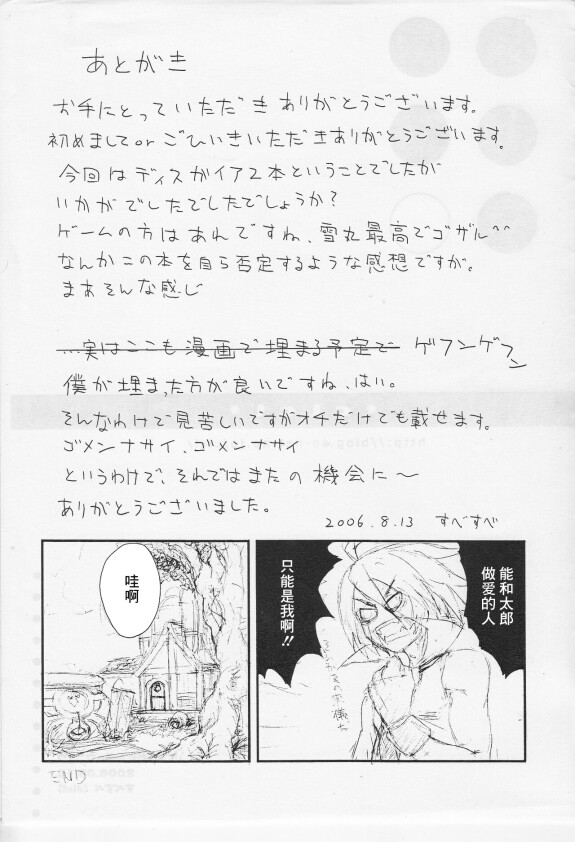 あとがき
お手にとっていただき ありがとうございます。
初めまして or ごひいきいただきありがとうございます。
今回は ディスガイア2本ということでしたが
いかがでしたでしたでしょうか?
ゲームの方は あれですね、雪丸最高でゴザル^^
なんか この本を自ら否定するような感想ですが。
まあそんな感じ
…実はここも漫画で埋まる予定で ゲフンゲフン
僕が埋まった方が良いですね、はい。
そんなわけで見苦しいですがオチだけでも載せます。
ゴメンナサイ、ゴメンナサイ
というわけで、それではまたの機会に〜
ありがとうございました。
2006.8.13 すべすべ
能和太郎
做爱的人
只能是我啊!!
哇啊
END